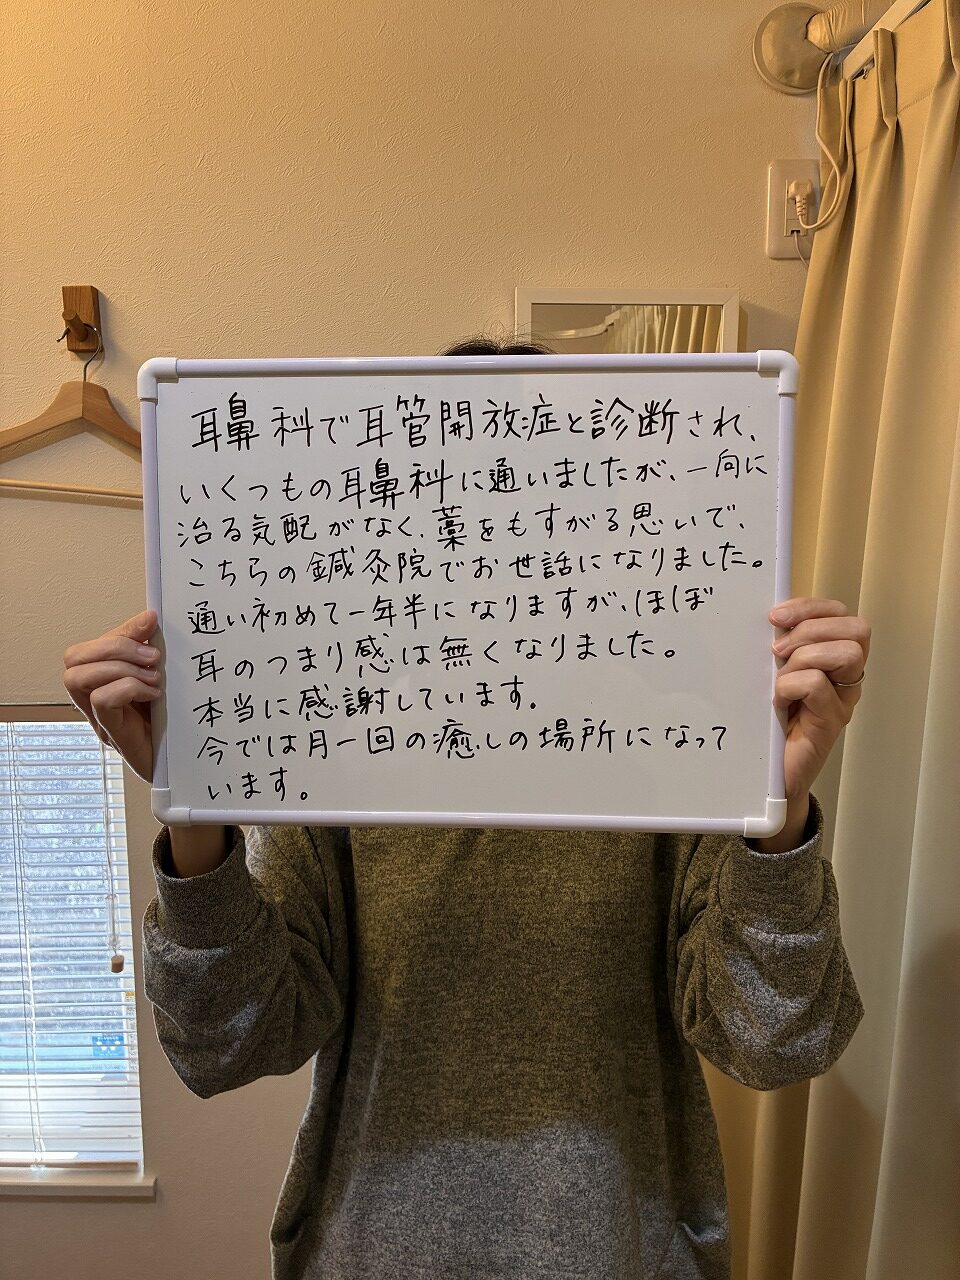 耳鼻科で耳管開放症と診断され、
いくつもの耳鼻科に通いましたが、一向に
治る気配がなく、藁をもすがる思いで、
こちらの鍼灸院でお世話になりました。
通い初めて一年半になりますが、ほぼ
耳のつまり感は無くなりました。
本当に感謝しています。
今では月一回の癒しの場所になって
います。